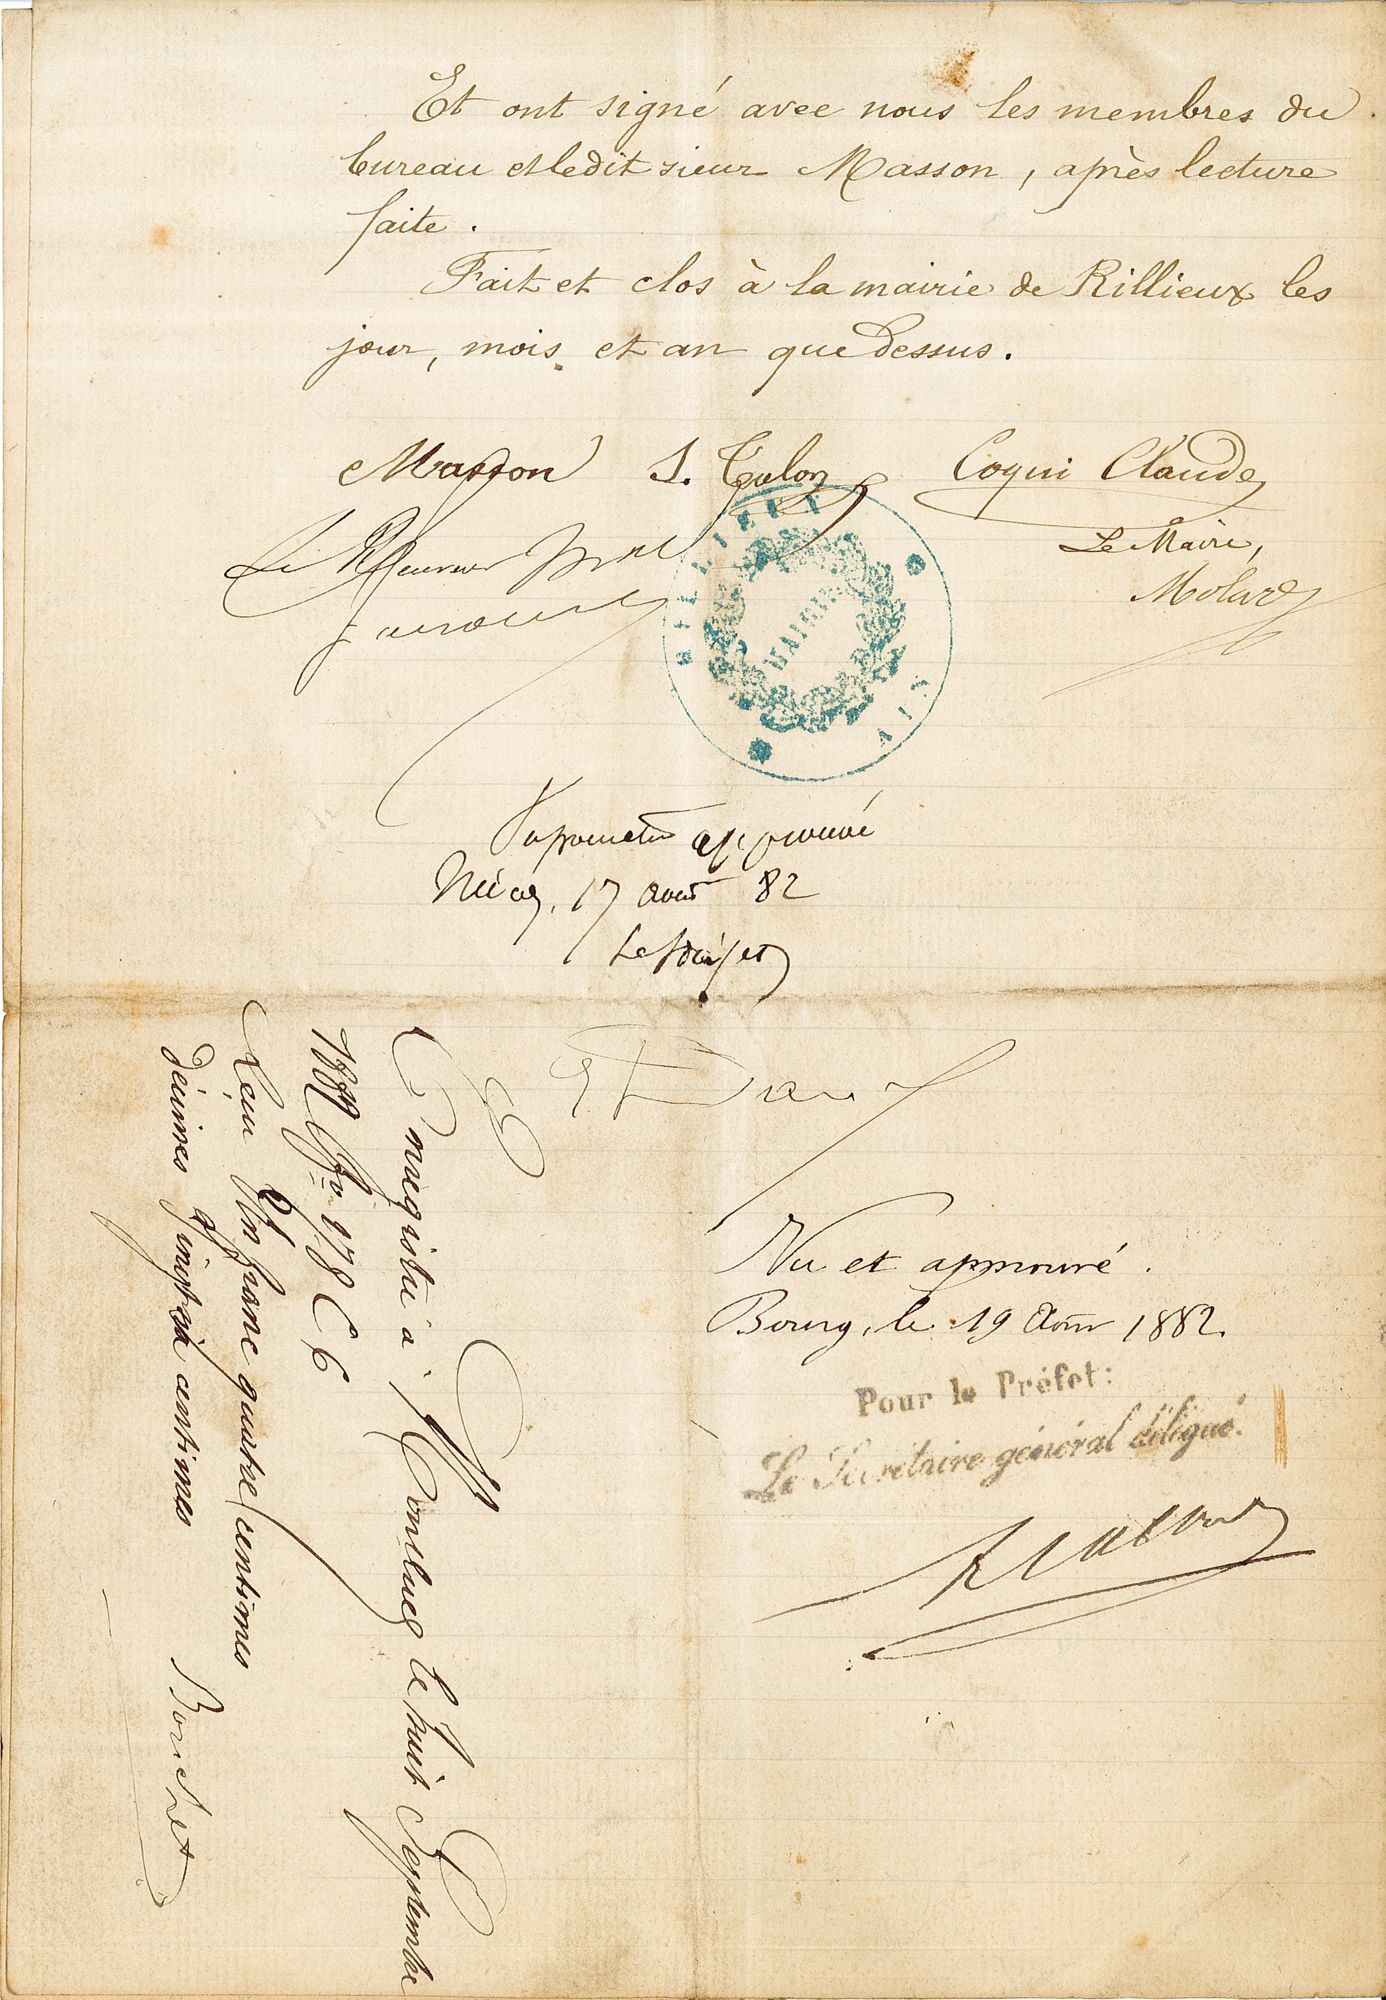 Et ont signé avec nous les membres du
bureau et ledit sieur Masson, après lecture
faite.
Fait et clos à la mairie de Rillieux les
jour, mois et an que dessus.
Masson J. Talon Coqui Claude
Le Maire,
Molard
Le Receveur
RILLIEUX
MAIRIE
AIN
approuvé
17 août 82
Le Préfet
Vu et approuvé.
Bourg, le 19 Août 1882.
Pour le Préfet:
Le Secrétaire général délégué.
Enregistré à Montluel le huit Septembre
1882 fo 178 C 6
Reçu Un franc quatre centimes
décimes vingt six centimes
Bouchet